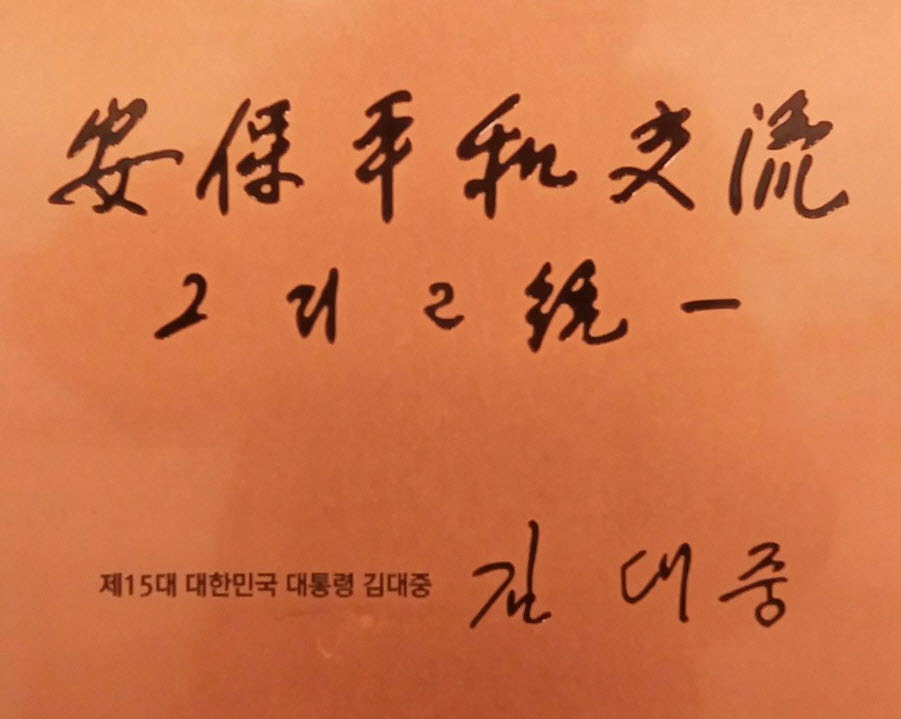 安保平和交流
그리고 統一
제15대 대한민국 대통령 김대중 김대중